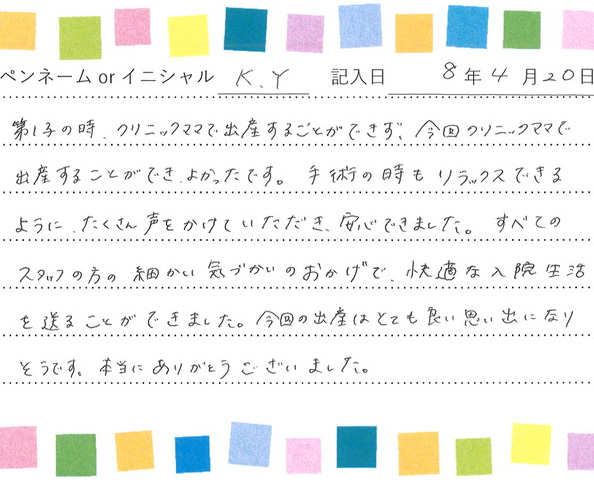 ペンネーム or イニシャル K.Y 記入日 8年4月20日
第1子の時、クリニックママで出産することができず、今回クリニックママで
出産することができ、よかったです。手術の時もリラックスできる
ように、たくさん声をかけていただき、安心できました。すべての
スタッフの方の細かい気づかいのおかげで、快適な入院生活
を送ることができました。今回の出産はとても良い思い出になり
そうです。本当にありがとうございました。